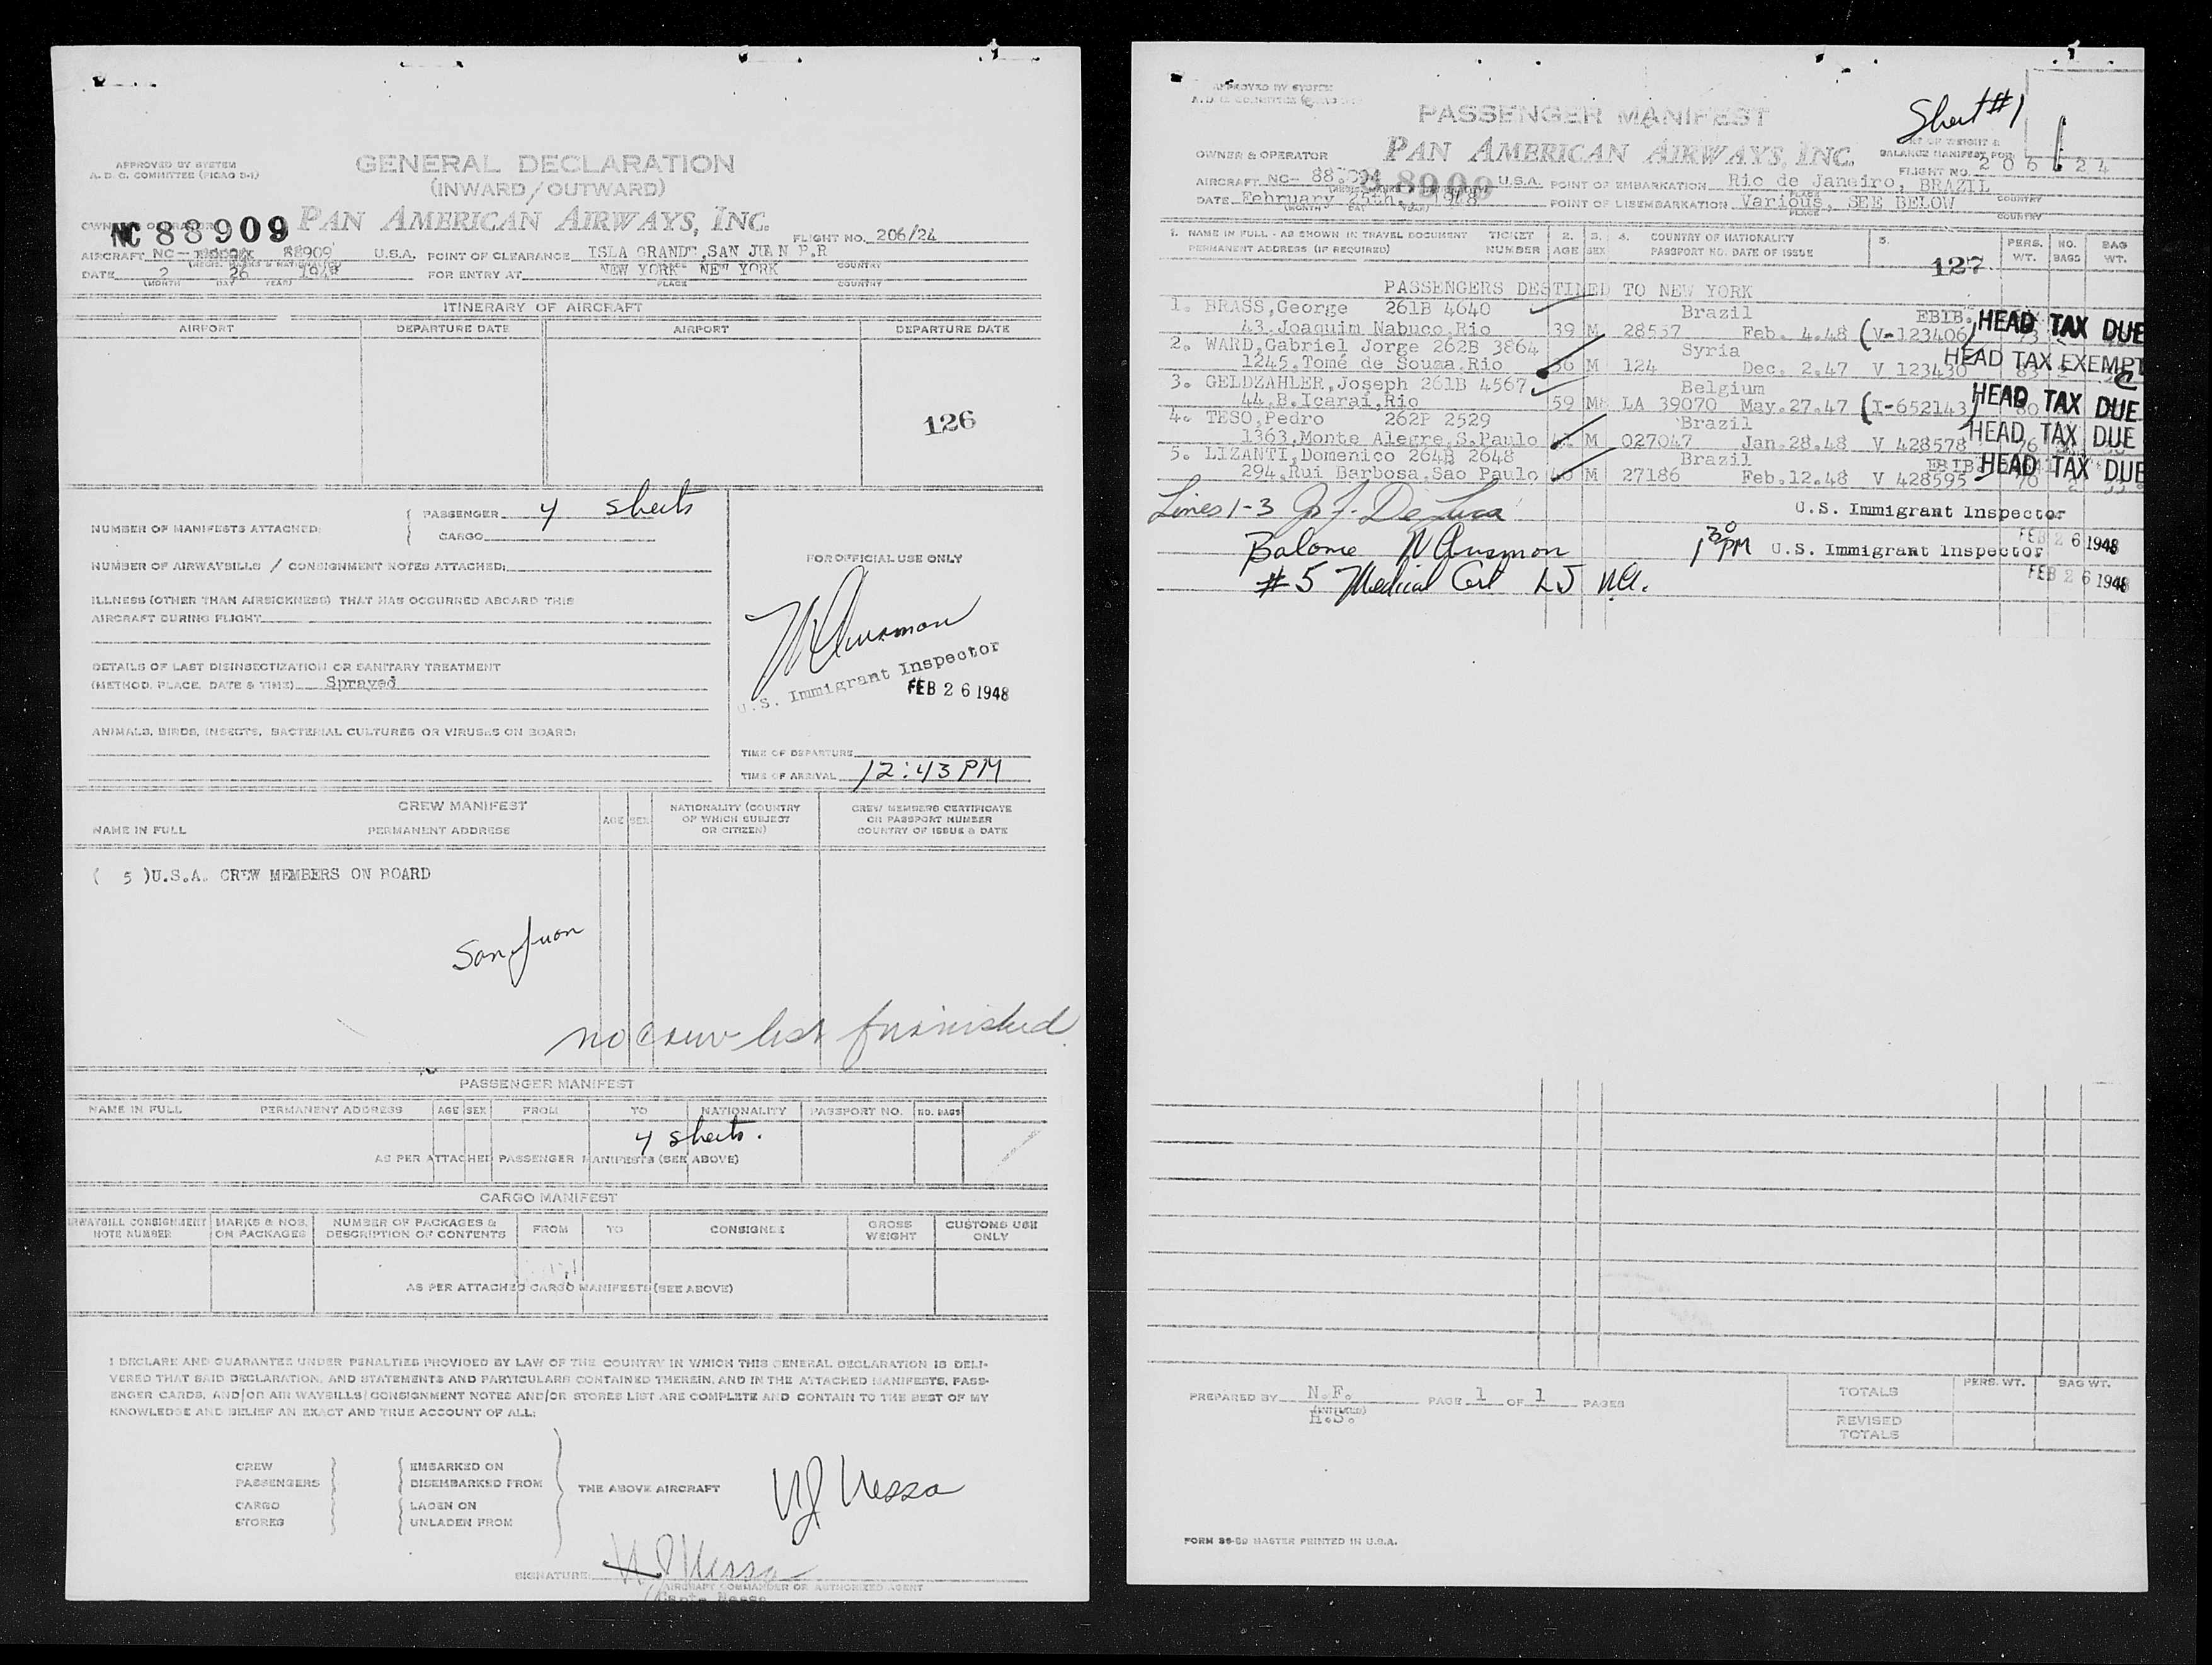 APPROVED BY SYSTEM
A. D. C. COMMITTEE (PICAO D-1)
GENERAL DECLARATION
(INWARD / OUTWARD)
NC 88909
PAN AMERICAN AIRWAYS, INC.
FLIGHT NO. 206/24
AIRCRAFT NC- 88909 U.S.A. POINT OF CLEARANCE ISLA GRANDE, SAN JUAN P.R
COUNTRY
DATE 2 26 1948 FOR ENTRY AT NEW YORK NEW YORK
(MONTH DAY YEAR) PLACE COUNTRY
ITINERARY OF AIRCRAFT
AIRPORT DEPARTURE DATE AIRPORT DEPARTURE DATE
126
NUMBER OF MANIFESTS ATTACHED: PASSENGER 4 sheets
CARGO
NUMBER OF AIRWAYBILLS / CONSIGNMENT NOTES ATTACHED:
ILLNESS (OTHER THAN AIRSICKNESS) THAT HAS OCCURRED ABOARD THIS
AIRCRAFT DURING FLIGHT
DETAILS OF LAST DISINSECTIZATION OR SANITARY TREATMENT
(METHOD, PLACE, DATE & TIME) Sprayed
ANIMALS, BIRDS, INSECTS, BACTERIAL CULTURES OR VIRUSES ON BOARD:
FOR OFFICIAL USE ONLY
U.S. Immigrant Inspector
FEB 26 1948
TIME OF DEPARTURE
TIME OF ARRIVAL 12:43 PM
CREW MANIFEST
NAME IN FULL PERMANENT ADDRESS AGE SEX NATIONALITY (COUNTRY OF WHICH SUBJECT OR CITIZEN) CREW MEMBERS CERTIFICATE OR PASSPORT NUMBER COUNTRY OF ISSUE & DATE
( 5 )U.S.A. CREW MEMBERS ON BOARD
San Juan
no crew list furnished.
PASSENGER MANIFEST
NAME IN FULL PERMANENT ADDRESS AGE SEX FROM TO NATIONALITY PASSPORT NO. NO. BAGS
4 sheets.
AS PER ATTACHED PASSENGER MANIFESTS (SEE ABOVE)
CARGO MANIFEST
AIRWAYBILL CONSIGNMENT NOTE NUMBER MARKS & NOS. ON PACKAGES NUMBER OF PACKAGES & DESCRIPTION OF CONTENTS FROM TO CONSIGNEE GROSS WEIGHT CUSTOMS USE ONLY
AS PER ATTACHED CARGO MANIFESTS (SEE ABOVE)
I DECLARE AND GUARANTEE UNDER PENALTIES PROVIDED BY LAW OF THE COUNTRY IN WHICH THIS GENERAL DECLARATION IS DELI-
VERED THAT SAID DECLARATION, AND STATEMENTS AND PARTICULARS CONTAINED THEREIN, AND IN THE ATTACHED MANIFESTS, PASS-
ENGER CARDS, AND/OR AIR WAYBILLS/CONSIGNMENT NOTES AND/OR STORES LIST ARE COMPLETE AND CONTAIN TO THE BEST OF MY
KNOWLEDGE AND BELIEF AN EXACT AND TRUE ACCOUNT OF ALL:
CREW EMBARKED ON
PASSENGERS DISEMBARKED FROM
THE ABOVE AIRCRAFT
CARGO LADEN ON
STORES UNLADEN FROM
Nessa
SIGNATURE: Nessa
AIRCRAFT COMMANDER OR AUTHORIZED AGENT
Capt. Nessa
APPROVED BY SYSTEM
PASSENGER MANIFEST
Sheet #1
OWNER & OPERATOR PAN AMERICAN AIRWAYS, INC.
BALANCE MANIFEST FOR
FLIGHT NO. 206 24
AIRCRAFT NC- 88909 U.S.A. POINT OF EMBARKATION Rio de Janeiro, BRAZIL
PLACE COUNTRY
DATE February 25th., 1948 POINT OF DISEMBARKATION Various, SEE BELOW
(MONTH DAY YEAR) PLACE COUNTRY
1. NAME IN FULL - AS SHOWN IN TRAVEL DOCUMENT TICKET 2. 3. 4. COUNTRY OF NATIONALITY 5. PERS. NO. BAG
PERMANENT ADDRESS (IF REQUIRED) NUMBER AGE SEX PASSPORT NO. DATE OF ISSUE WT. BAGS WT.
127
PASSENGERS DESTINED TO NEW YORK
1. BRASS,George 261B 4640 Brazil EBIB.
43,Joaquim Nabuco,Rio 39 M 28537 Feb. 4.48 (V-123406) HEAD TAX DUE
2. WARD,Gabriel Jorge 262B 3864 Syria
1245,Tomé de Souza,Rio 36 M 124 Dec. 2.47 V 123430 HEAD TAX EXEMPT
3. GELDZAHLER,Joseph 261B 4567 Belgium
44,B.Icarai,Rio 59 M LA 39070 May.27.47 (I-652143) HEAD TAX DUE
4. TESO,Pedro 262P 2529 Brazil
1363,Monte Alegre,S.Paulo M 027047 Jan.28.48 V 428578 HEAD TAX DUE
5. LIZANTI,Domenico 264B 2648 Brazil EBIB.
294,Rui Barbosa,Sao Paulo 40 M 27186 Feb.12.48 V 428595 HEAD TAX DUE
Lines 1-3 J. F. De Luca U.S. Immigrant Inspector
FEB 26 1948
Balance 1 30 PM U.S. Immigrant Inspector
FEB 26 1948
#5 Medical Cert LJ
PREPARED BY N.F. PAGE 1 OF 1 PAGES
(INITIALS)
H.S.
PERS. WT. BAG WT.
TOTALS
REVISED TOTALS
FORM 86-80 MASTER PRINTED IN U.S.A.